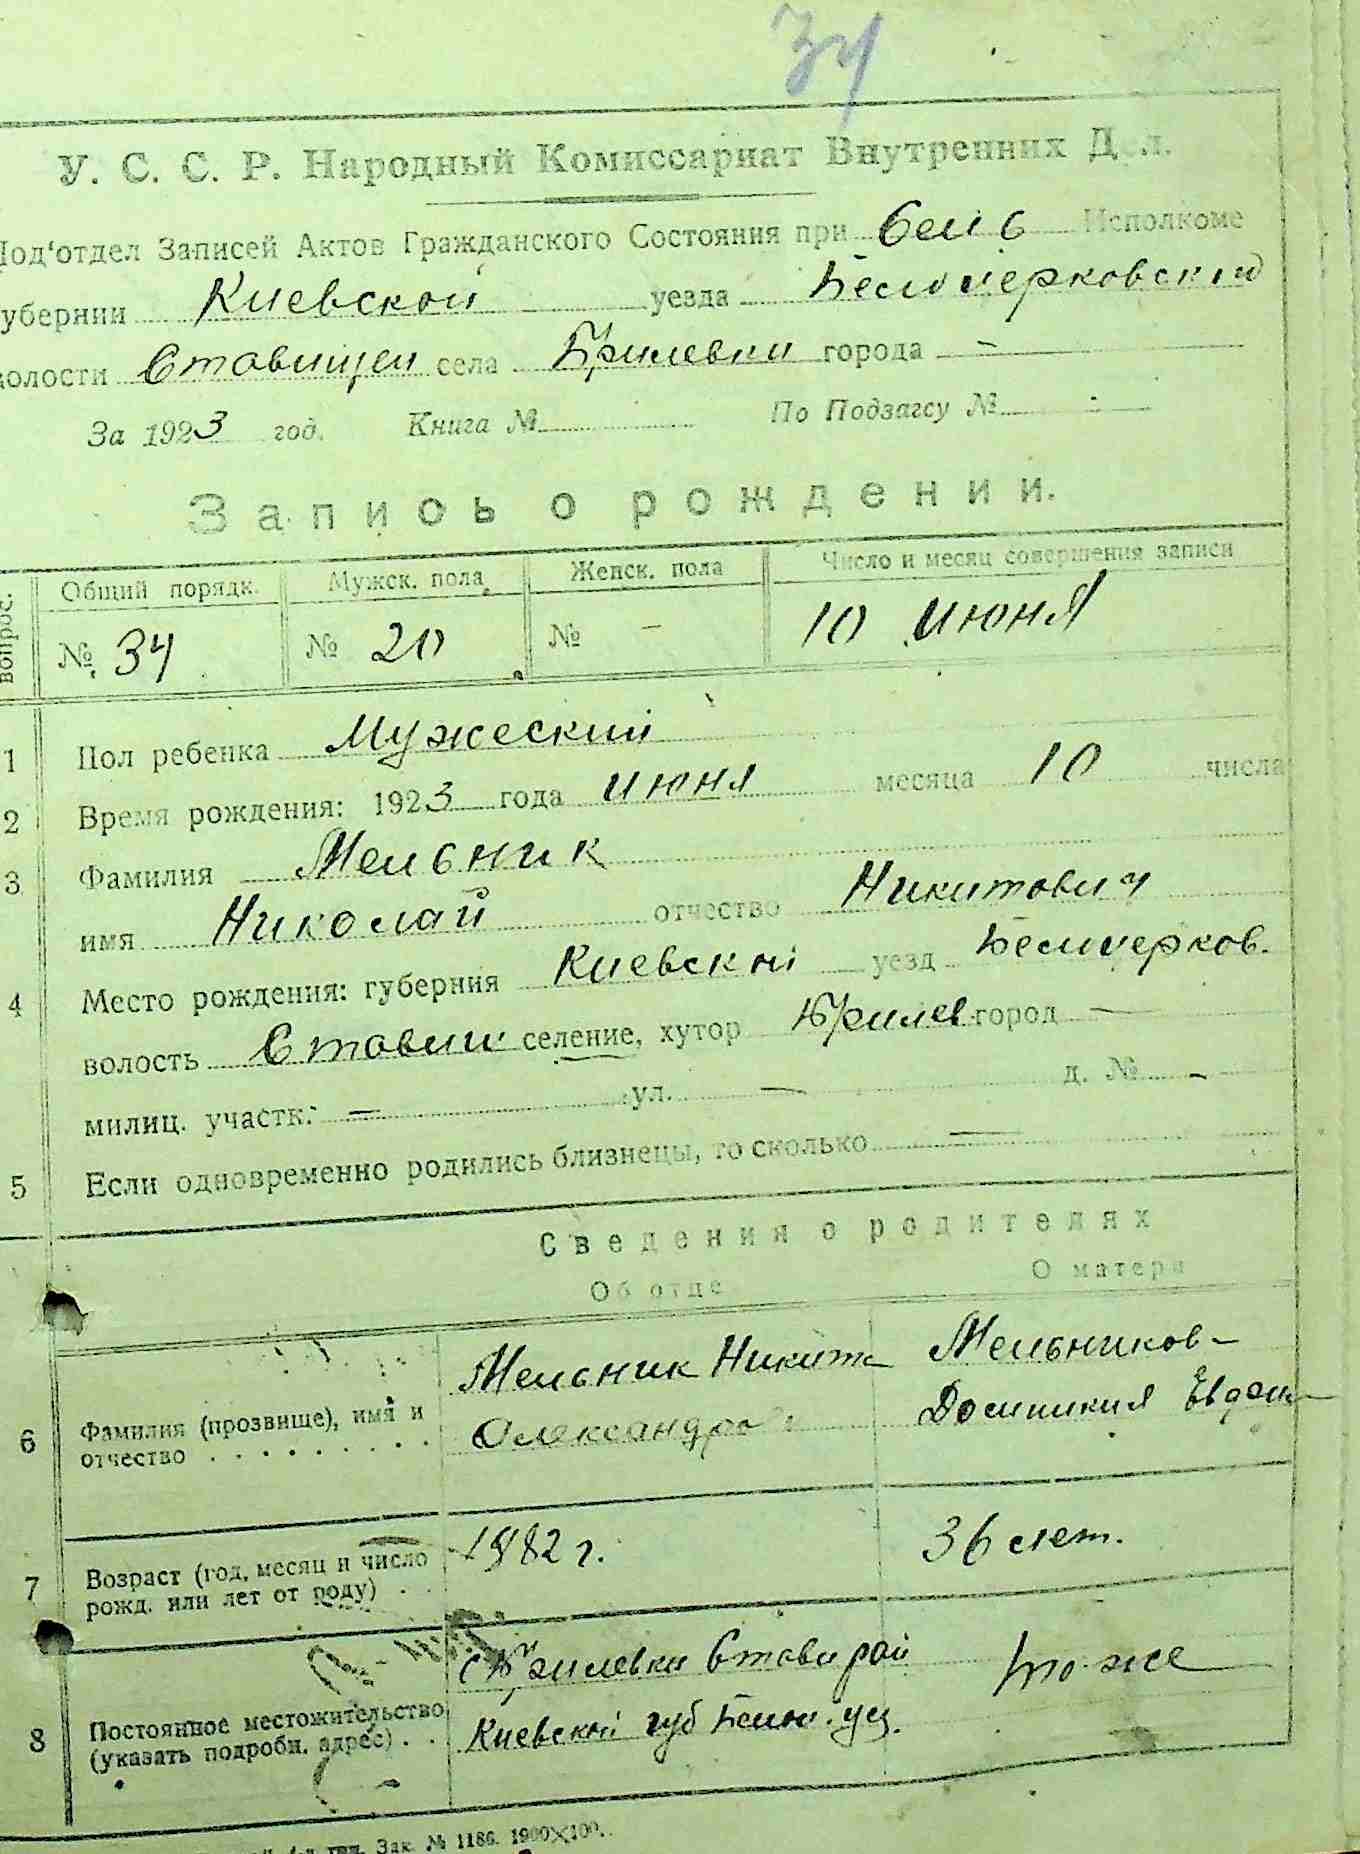 34
У. С. С. Р. Народный Комиссариат Внутренних Дел.
Под'отдел Записей Актов Гражданского Состояния при Исполкоме
губернии Киевской уезда Белоцерковский
волости Ставищеи села города -
За 1923 год. Книга № По Подзагсу №
Запись о рождении.
Вопрос. Общий порядк. Мужск. пола Женск. пола Число и месяц совершения записи
№ 34 № 20 № - 10 июня
1 Пол ребенка Мужеский
2 Время рождения: 1923 года июня месяца 10 числа
3 Фамилия Мельник
имя Николай отчество Никитович
4 Место рождения: губерния Киевскні уезд Белоцерков.
волость Ставищ селение, хутор город —
милиц. участк: — ул. — д. № -
5 Если одновременно родились близнецы, то сколько —
Сведения о родителях
Об отце О матери
6 Фамилия (прозвище), имя и отчество Мельник Никита Олександров Мельников-
7 Возраст (год, месяц и число рожд. или лет от роду) 1882 г. 36 лет.
8 Постоянное местожительство (указать подробн. адрес) Стави рай
Киевскні губ уез. то-же
Зак. № 1186. 1900×100.